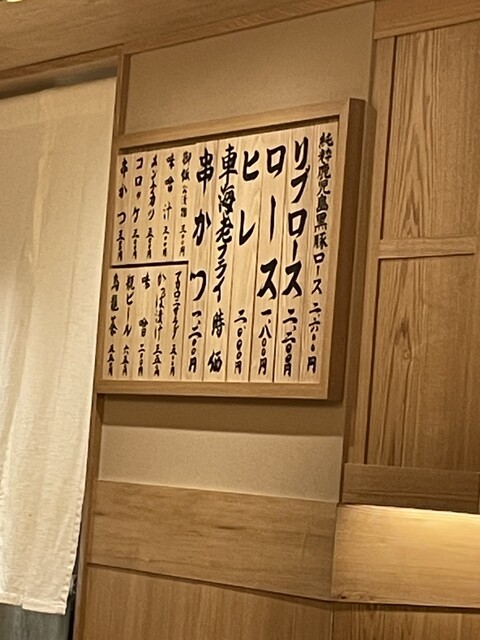 純粋鹿児島黒豚ロース 二、六〇〇円
リブロース 二、二〇〇円
ロース 一、八〇〇円
ヒレ 二、〇〇〇円
車海老フライ 時価
串かつ 一、二〇〇円
御飯
味噌汁 三〇〇円
メンチカツ
コロッケ
串かつ
マカロニサラダ
かっぱ漬け
味噌 二〇〇円
瓶ビール
烏龍茶